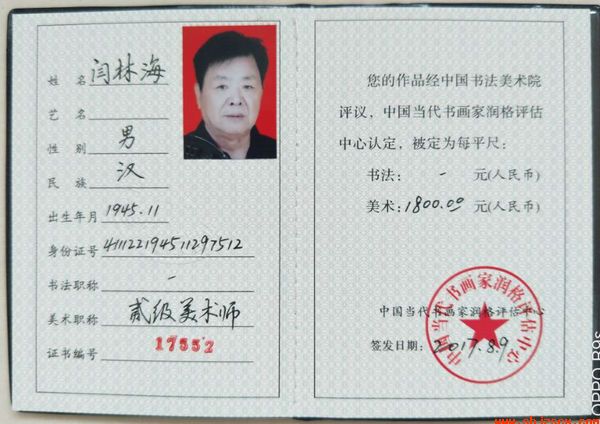 姓名 闫林海
艺名
性别 男
民族 汉
出生年月 1945.11
身份证号 411122194511297512
书法职称 一
美术职称 贰级美术师
证书编号 17552
您的作品经中国书法美术院
评议，中国当代书画家润格评估
中心认定，被定为每平尺：
书法： - 元(人民币)
美术：1800.00 元(人民币)
中国当代书画家润格评估中心
签发日期：2017.8.9
中国当代书画家润格评估中心
OPPO R9s